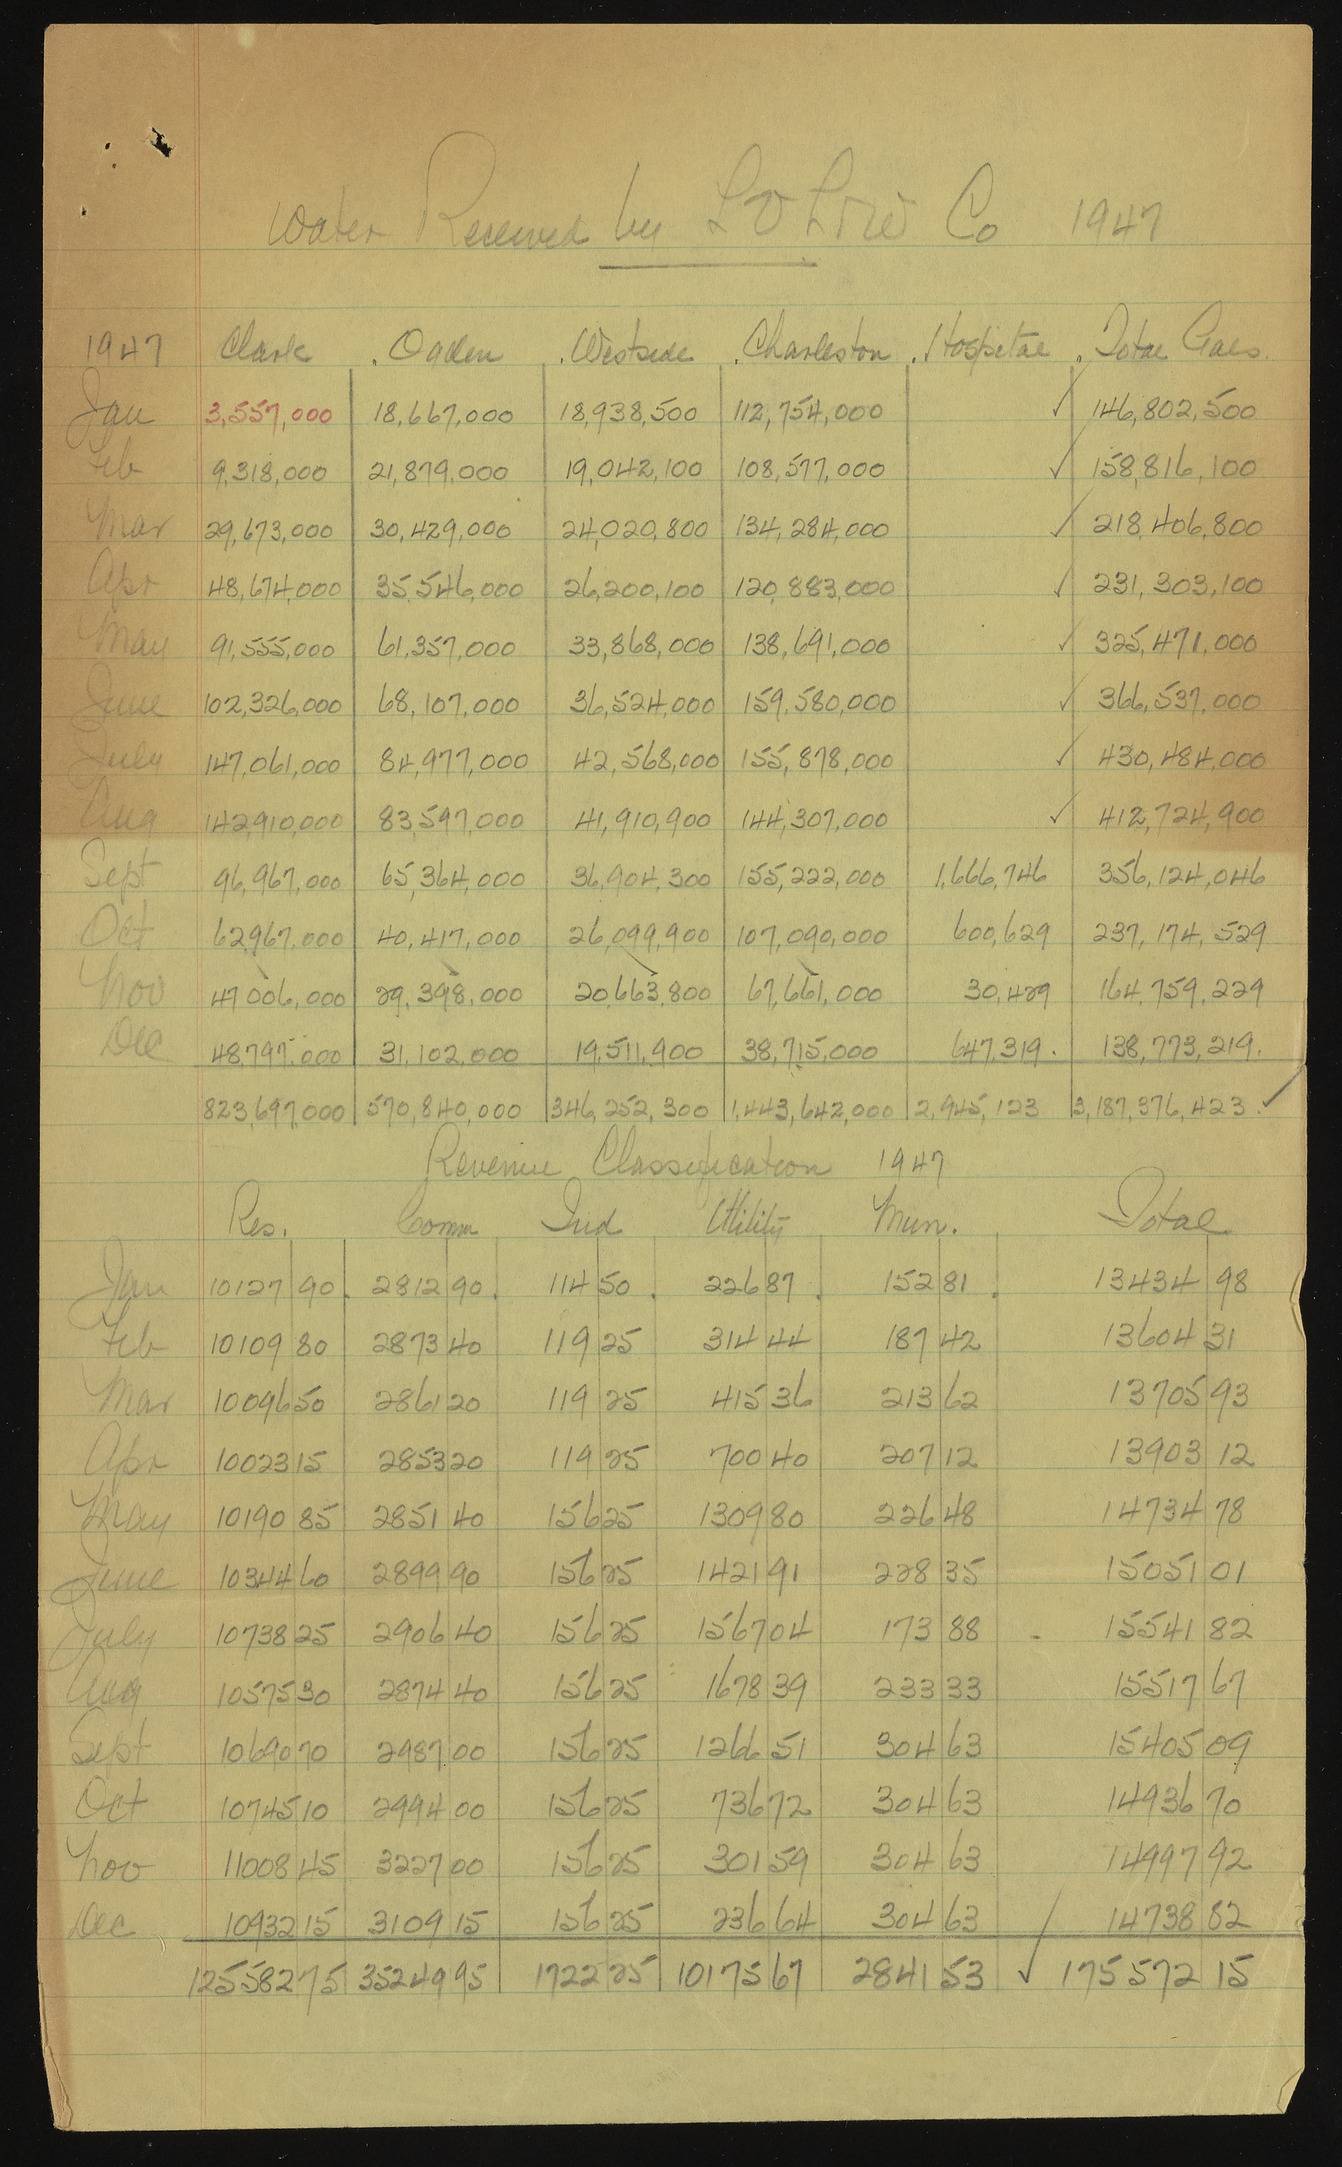 Water Received by L V L & W Co 1947
1947 Clark Ogden Westside Charleston Hospital Total Gals.
Jan 3,557,000 18,667,000 18,938,500 112,754,000 ✓ 146,802,500
Feb 9,318,000 21,879,000 19,042,100 108,577,000 ✓ 158,816,100
Mar 29,673,000 30,429,000 24,020,800 134,284,000 ✓ 218,406,800
Apr 48,674,000 35,546,000 26,200,100 120,883,000 ✓ 231,303,100
May 91,555,000 61,357,000 33,868,000 138,691,000 ✓ 325,471,000
June 102,326,000 68,107,000 36,524,000 159,580,000 ✓ 366,537,000
July 147,061,000 84,977,000 42,568,000 155,878,000 ✓ 430,484,000
Aug 142,910,000 83,597,000 41,910,900 144,307,000 ✓ 412,724,900
Sept 96,967,000 65,364,000 36,904,300 155,222,000 1,666,746 356,124,046
Oct 62,967,000 40,417,000 26,099,900 107,090,000 600,629 237,174,529
Nov 47,006,000 29,398,000 20,663,800 67,661,000 30,429 164,759,229
Dec 48,797,000 31,102,000 19,511,900 38,715,000 647,319. 138,773,219.
823,697,000 570,840,000 346,252,300 1,443,642,000 2,945,123 3,187,376,423. ✓
Revenue Classification 1947
Res. Comm Ind Utility Mun. Total
Jan 10127 90 2812 90 114 50 226 87 152 81 13434 98
Feb 10109 80 2873 40 119 25 314 44 187 42 13604 31
Mar 10096 50 2861 20 119 25 415 36 213 62 13705 93
Apr 10023 15 2853 20 119 25 700 40 207 12 13903 12
May 10190 85 2851 40 156 25 1309 80 226 48 14734 78
June 10344 60 2899 90 156 25 1421 91 228 35 15051 01
July 10738 25 2906 40 156 25 1567 04 173 88 15541 82
Aug 10575 30 2874 40 156 25 1678 39 233 33 15517 67
Sept 10690 70 2987 00 156 25 1266 51 304 63 15405 09
Oct 10745 10 2994 00 156 25 736 72 304 63 14936 70
Nov 11008 45 3227 00 156 25 301 59 304 63 14997 92
Dec 10932 15 3109 15 156 25 236 64 304 63 14738 82
125582 75 35249 95 1722 25 10175 67 2841 53 ✓ 175572 15